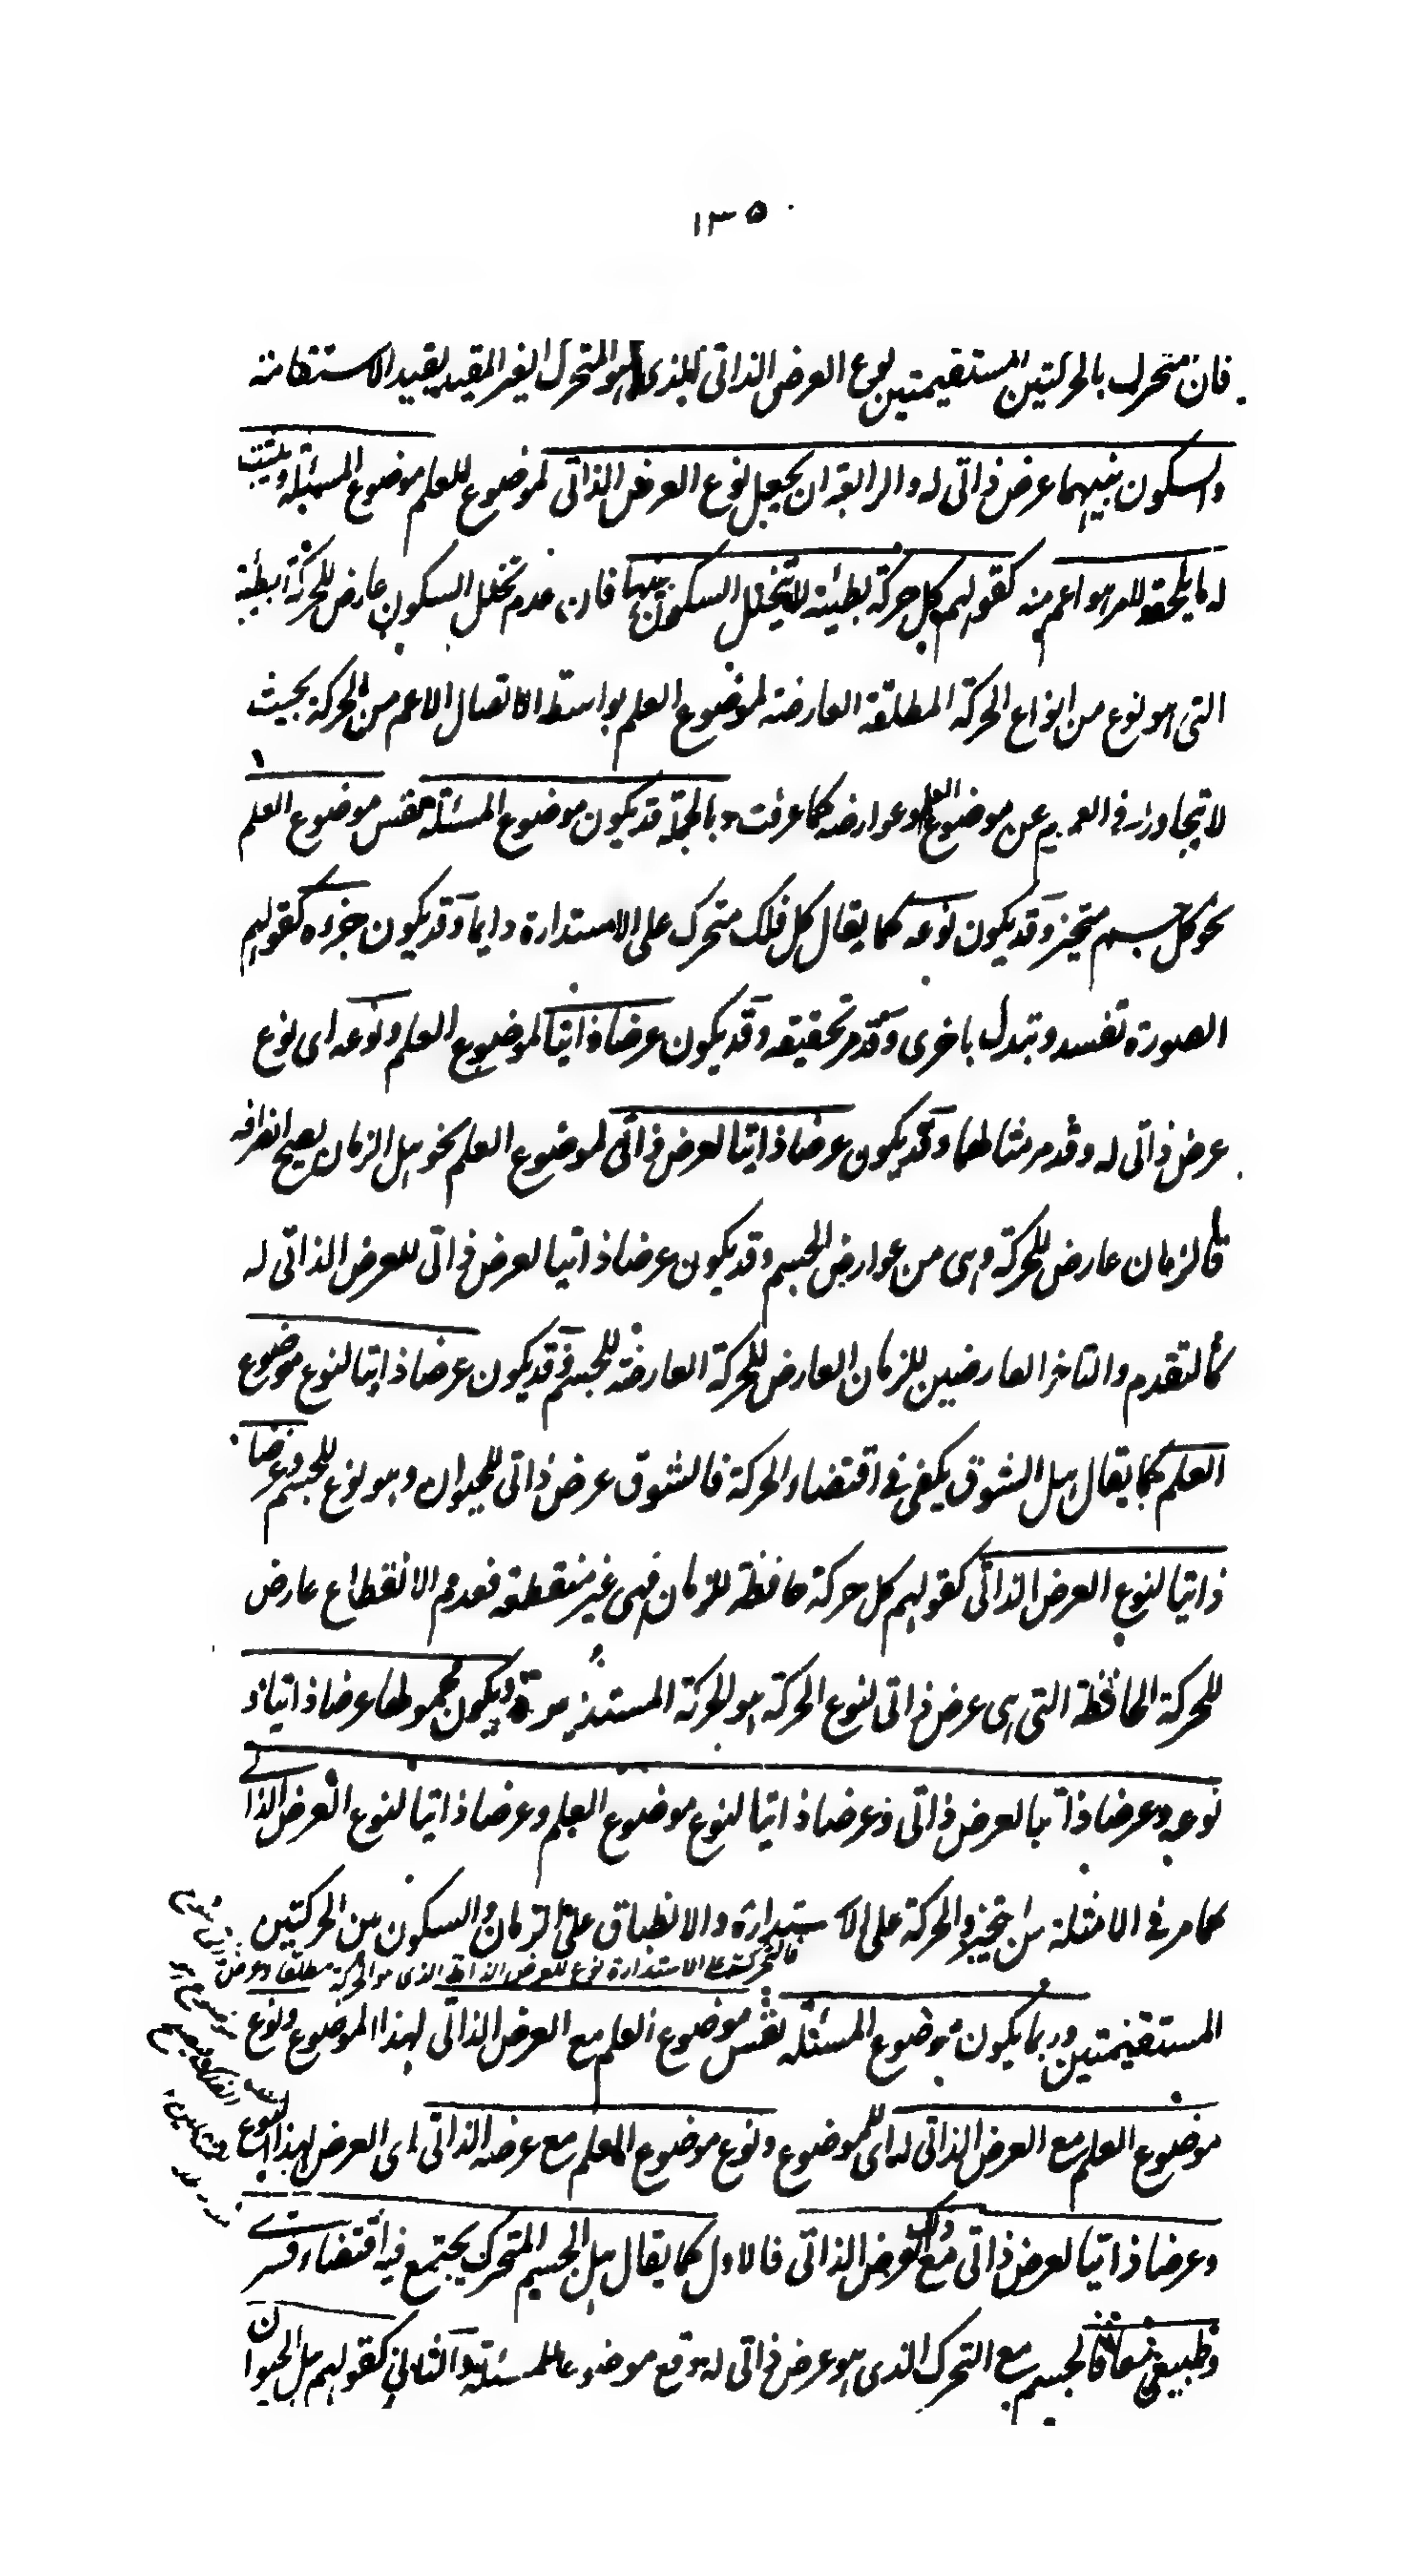 ١٣٥
فان متحرك بالحركتين المستقيمتين نوع العرض الذاتى الذى هو المتحرك الغير المقيد بقيد الاستقامة
والسكون بينهما عرض ذاتى له والرابعة ان يجعل نوع العرض الذاتى لموضوع العلم موضوع المسئلة ويثبت
له ما يلحقه لامر هو اعم منه كقولهم كل حركة بطيئة لا يتخلل السكون بينها فان عدم تخلل السكون عارض للحركة البطيئة
التى هو نوع من انواع الحركة المطلقة العارضة لموضوع العلم بواسطة الاتصال الاعم من الحركة بحيث
لا يتجاوز فى العموم عن موضوع العلم وعوارضه كما عرفت وبالجملة قد يكون موضوع المسئلة نفس موضوع العلم
نحو كل جسم متحيز وقد يكون نوعه كما يقال كل فلك متحرك على الاستدارة دايما وقد يكون جزءه كقولهم
الصورة تفسد وتبدل باخرى وقد مر تحقيقه وقد يكون عرضا ذاتيا لموضوع العلم ونوعه اى نوع
عرض ذاتى له وقد مر مثالهما وقد يكون عرضا ذاتيا لعرض ذاتى لموضوع العلم نحو هل الزمان يصح انصرافه
فالزمان عارض للحركة وهى من عوارض الجسم وقد يكون عرضا ذاتيا لعرض ذاتى للعرض الذاتى له
كالتقدم والتاخر العارضين للزمان العارض للحركة العارضة للجسم وقد يكون عرضا ذاتيا لنوع موضوع
العلم كما يقال هل الشوق يكفى فى اقتضاء الحركة فالشوق عرض ذاتى للحيوان وهو نوع للجسم وعرضا
ذاتيا لنوع العرض الذاتى كقولهم كل حركة حافظة للزمان فهى غير منقطعة فعدم الانقطاع عارض
للحركة الحافظة التى هى عرض ذاتى لنوع الحركة هو الحركة المستديرة وقد يكون مجموعا عرضا ذاتيا و
نوعه وعرضا ذاتيا لعرض ذاتى وعرضا ذاتيا لنوع موضوع العلم وعرضا ذاتيا لنوع العرض الذاتى
كما مر فى الامثلة من التحيز والحركة على الاستدارة والانطباق على الزمان والسكون بين الحركتين
فالتحرك على الاستدارة نوع للعرض الذاتى الذى هو الحركة مطلقا وعرض
المستقيمتين وربما يكون موضوع المسئلة نفس موضوع العلم مع العرض الذاتى لهذا الموضوع ونوع
موضوع العلم مع العرض الذاتى له اى للموضوع ونوع موضوع العلم مع عرضه الذاتى اى العرض لهذا النوع
وعرضا ذاتيا لعرض ذاتى مع ذلك العرض الذاتى فالاول كما يقال هل الجسم المتحرك يجتمع فيه اقتضاء قسرى
وطبيعى معا فالجسم مع التحرك الذى هو عرض ذاتى له وقع موضوعا للمسئلة والثانى كقولهم هل الحيوان